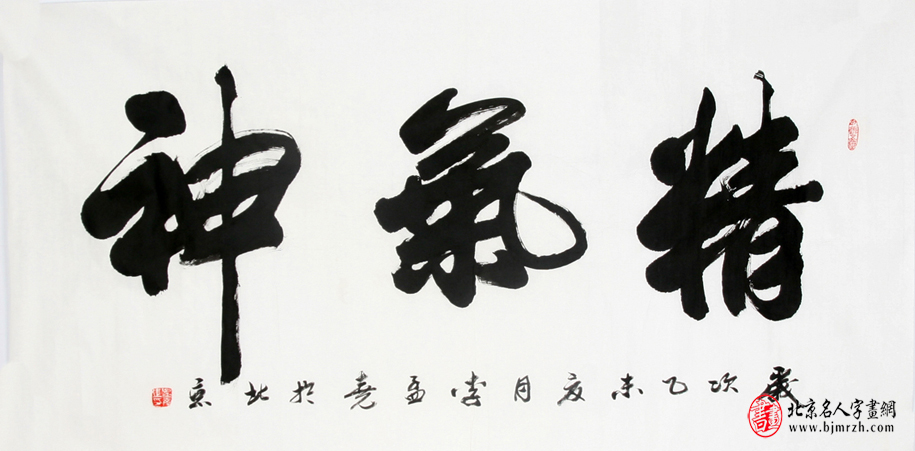 精氣神
歲次乙未夏月李孟尧於北京
北京名人字畫網
www.bjmrzh.com